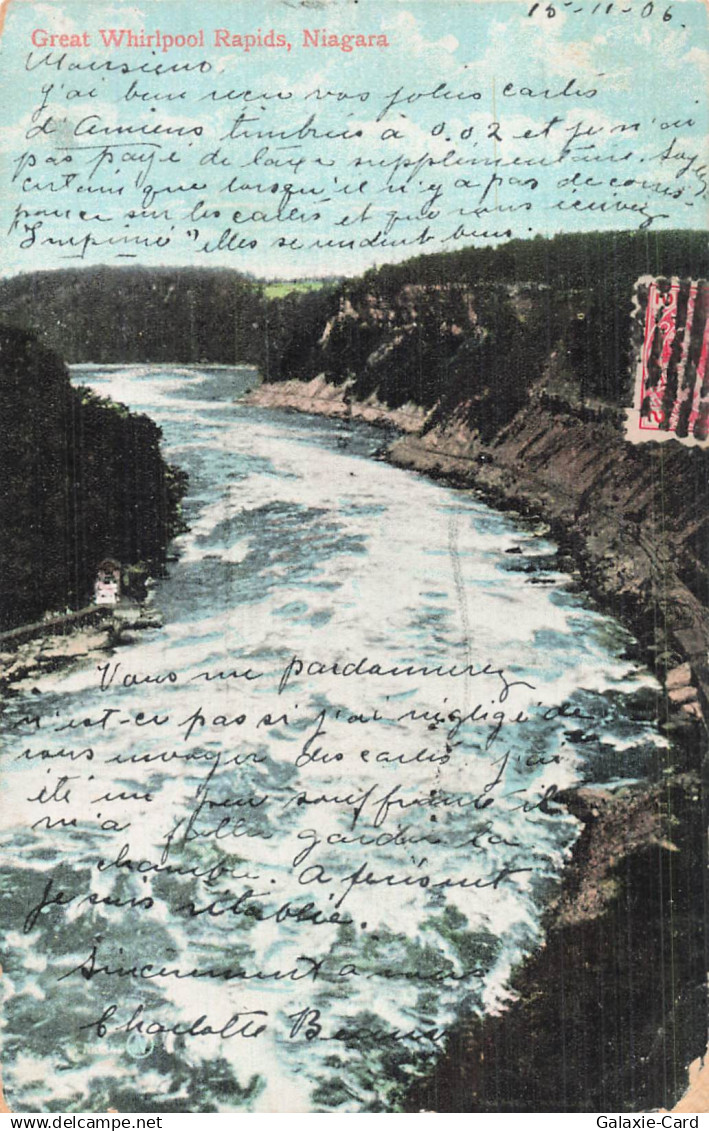 15-11-06.
Great Whirlpool Rapids, Niagara
Monsieur,
j'ai bien reçu vos jolies cartes
d'Amiens timbrées à 0.02 et je n'ai
pas payé de taxe supplémentaire. Soyez
certain que lorsqu'il n'y a pas de corres-
pondance sur les cartes et que vous écrivez
"Imprimé" elles se rendent bien.
Vous me pardonnerez
n'est-ce pas si j'ai négligé de
vous envoyer des cartes. j'ai
été un peu souffrante il
m'a fallu garder la
chambre. A présent
je suis rétablie.
Sincèrement à vous
Charlotte
Galaxie-Card